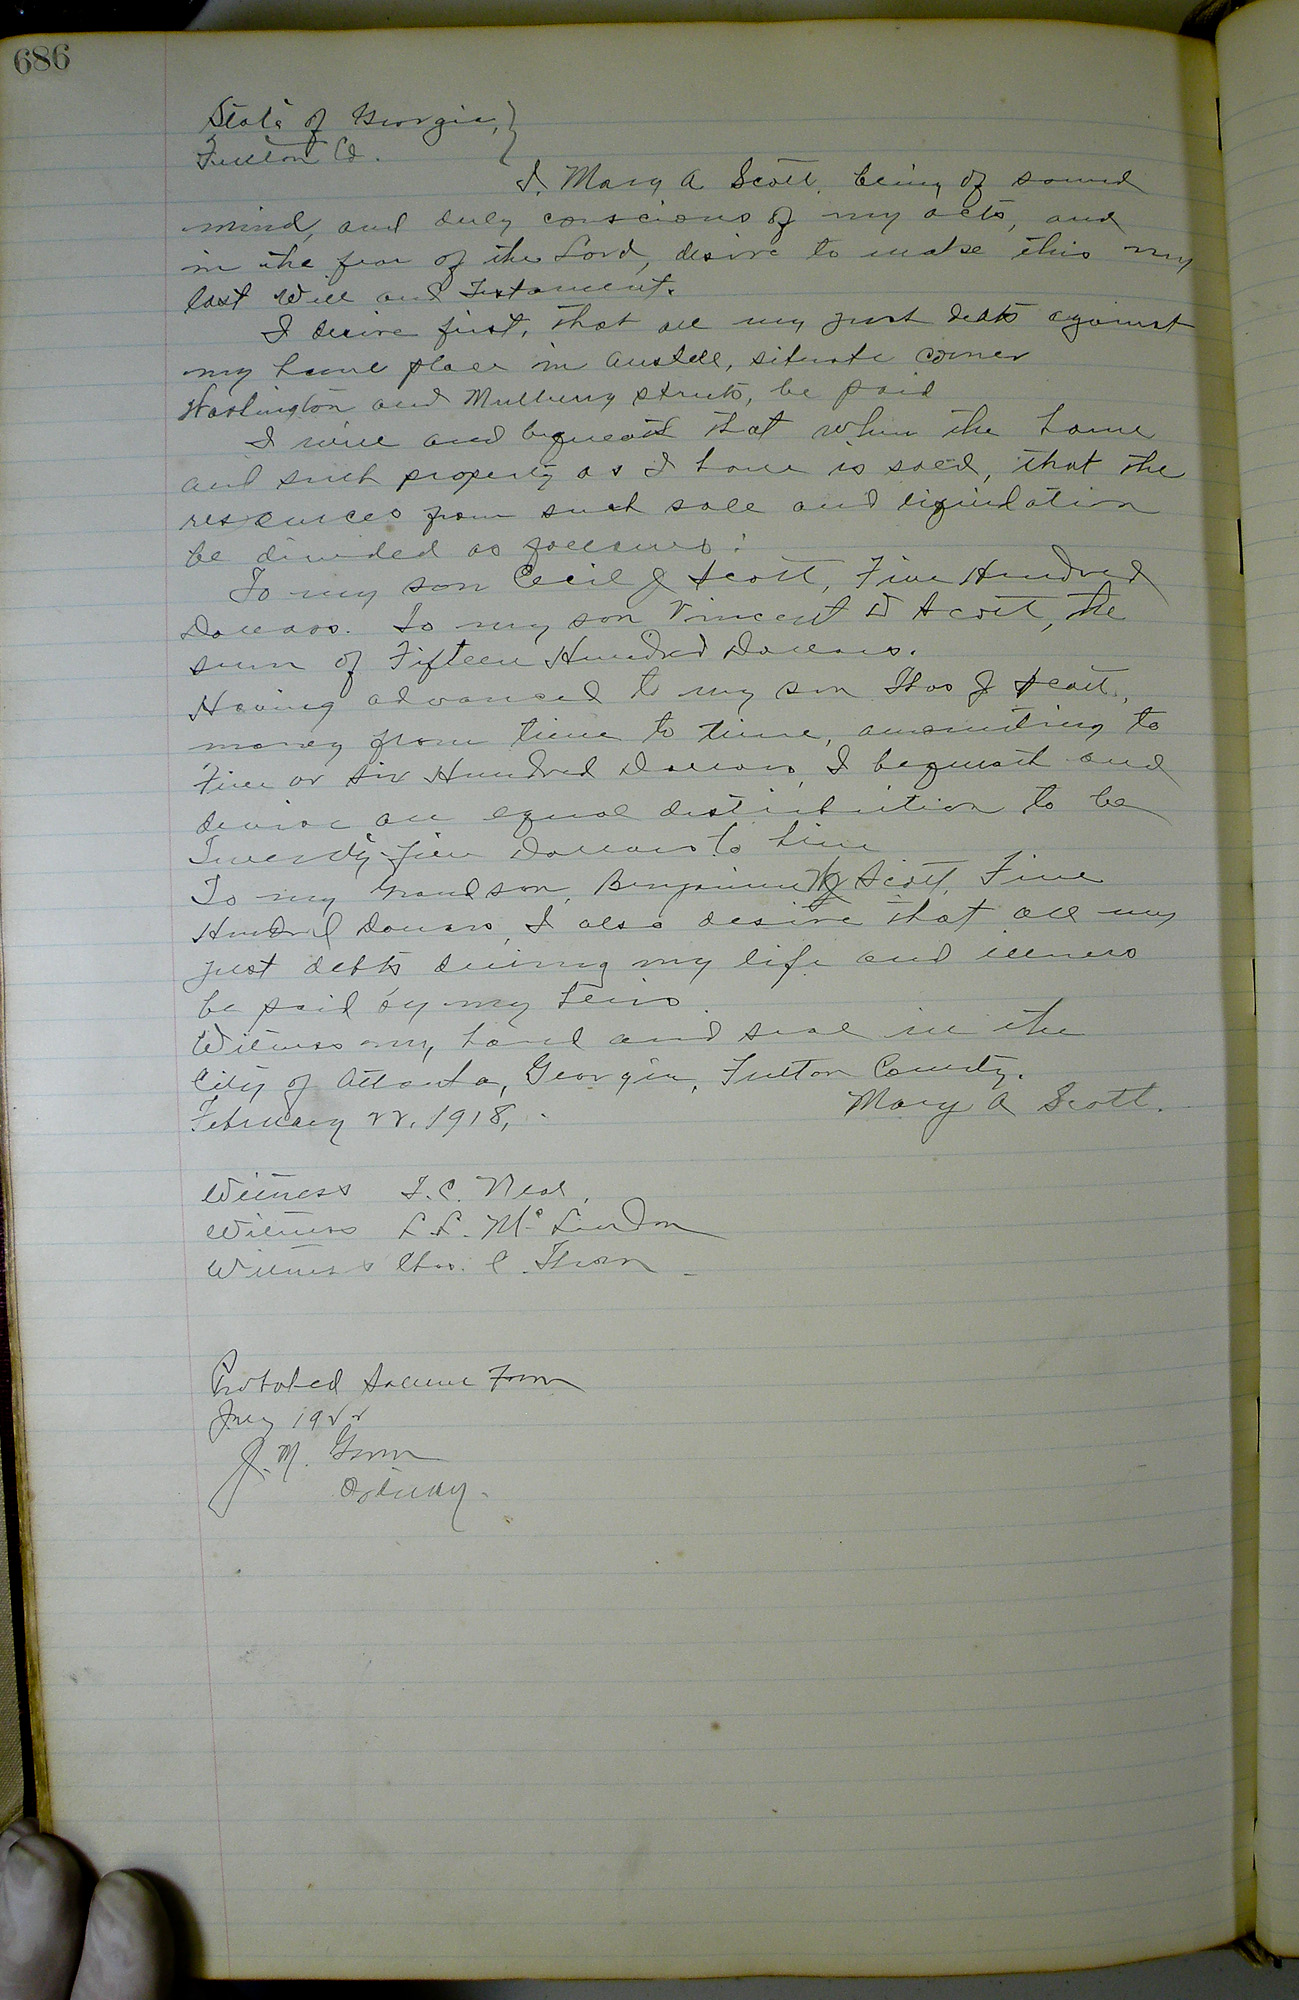 686
State of Georgia,
Fulton Co.
I, Mary A Scott, being of sound
mind, and duly conscious of my acts, and
in the fear of the Lord, desire to make this my
last Will and Testament.
I desire first, that all my just debts against
my home place in Austell, situate corner
Washington and Mulberry streets, be paid
I will and bequeath that when the home
and such property as I have is sold, that the
resources from such sale and liquidation
be divided as follows:
To my son Cecil J Scott, Five Hundred
Dollars. To my son Vincent D Scott, the
sum of Fifteen Hundred Dollars.
Having advanced to my son Thos J Scott,
money from time to time, amounting to
Five or Six Hundred Dollars, I bequeath and
devise an equal distribution to be
Twenty-five Dollars to him
To my Grand son, Benjamin Scott, Five
Hundred Dollars, I also desire that all my
just debts during my life and illness
be paid by my heirs.
Witness my hand and seal in the
City of Atlanta, Georgia, Fulton County.
February 22, 1918,
Mary A Scott.
Witness T. C. Neal,
Witness L. L. McLendon
Witness Chas. C. Thorn
Probated Solemn Form
1922
J. M.
Ordinary.